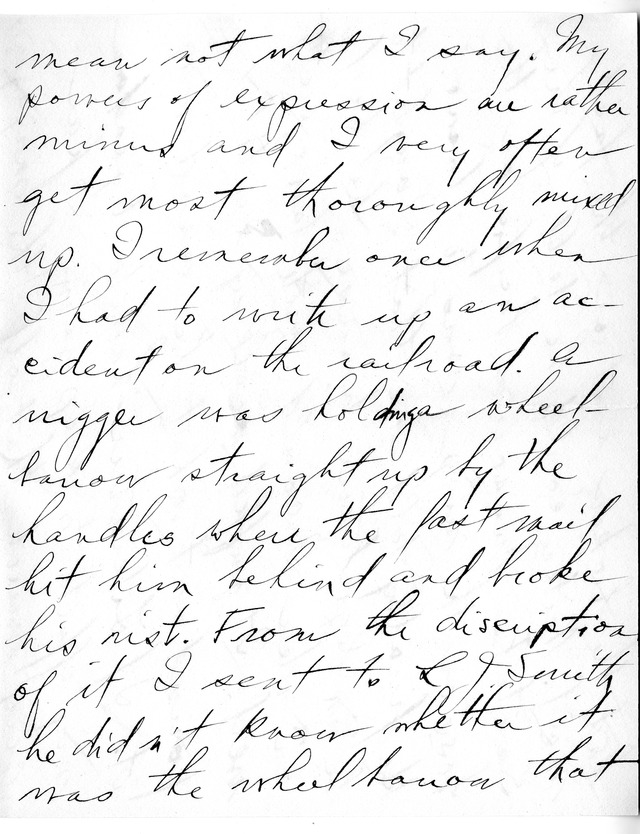 mean not what I say. My
powers of expression are rather
minus and I very often
get most thoroughly mixed
up. I remember once when
I had to write up an ac-
cident on the railroad. A
nigger was holding a wheel-
barrow straight up by the
handles when the fast mail
hit him behind and broke
his rist. From the discription
of it I sent to L J. Smith
he didn't know whether it
was the wheelbarrow that